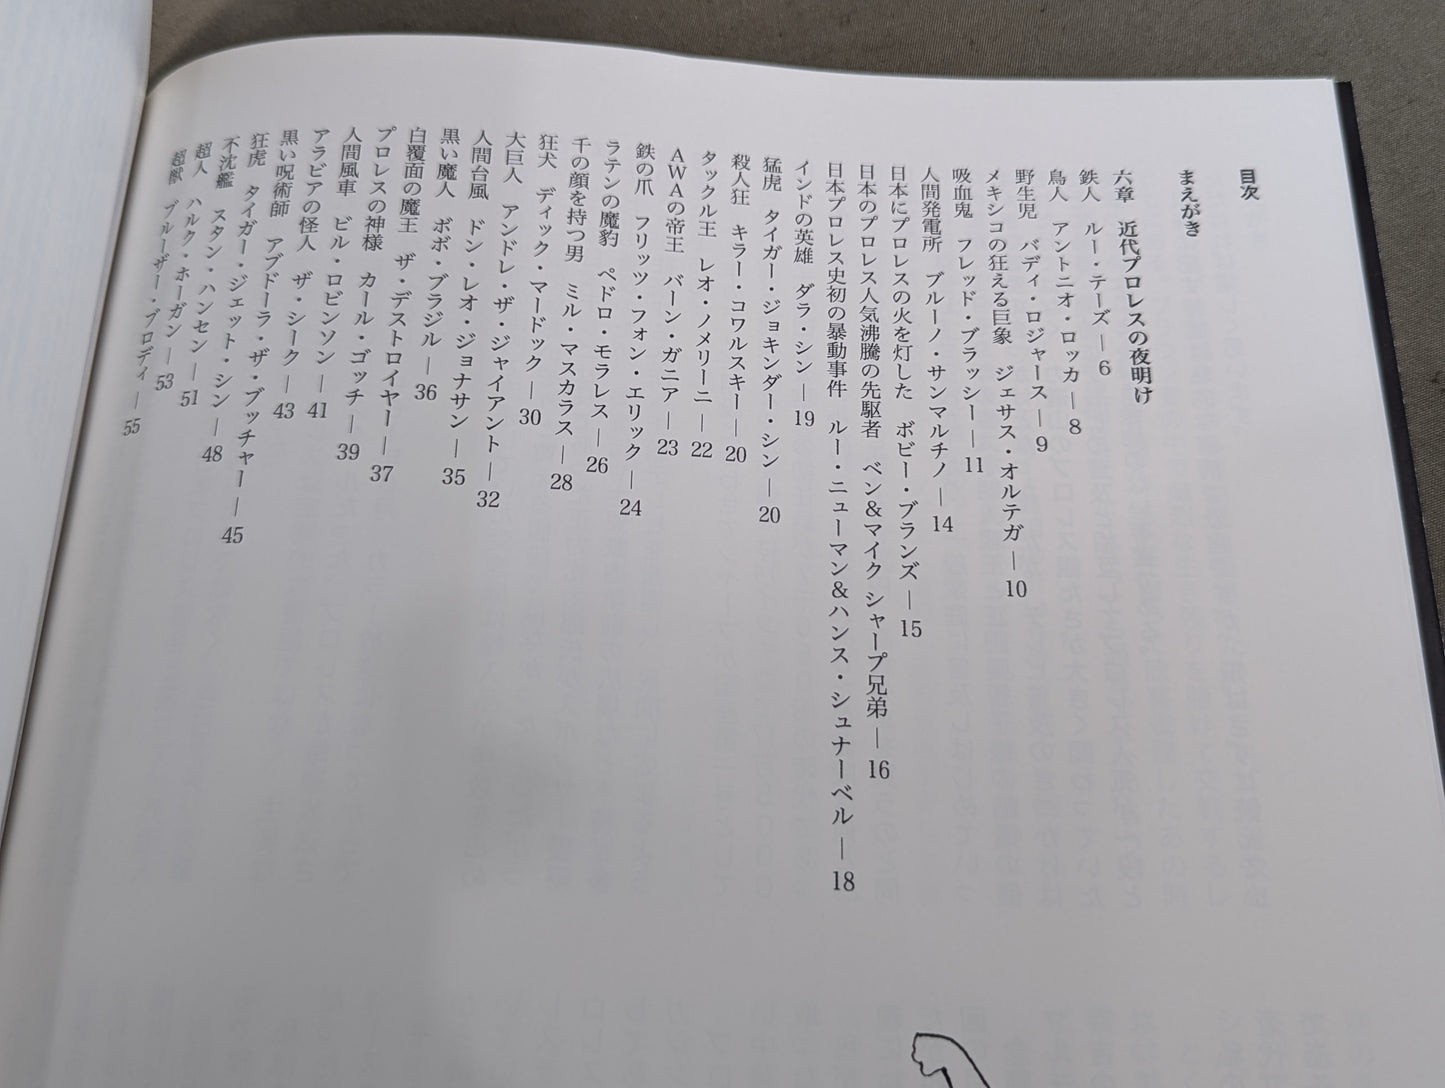 目次
まえがき
六章　近代プロレスの夜明け
鉄人　ルー・テーズ — 6
鳥人　アントニオ・ロッカ — 8
野生児　バディ・ロジャース — 9
メキシコの狂える巨象　ジェサス・オルテガ — 10
吸血鬼　フレッド・ブラッシー — 11
人間発電所　ブルーノ・サンマルチノ — 14
日本にプロレスの火を灯した　ボビー・ブランズ — 15
日本のプロレス人気沸騰の先駆者　ベン＆マイク シャープ兄弟 — 16
日本プロレス史初の暴動事件　ルー・ニューマン＆ハンス・シュナーベル — 18
インドの英雄　ダラ・シン — 19
猛虎　タイガー・ジョキンダー・シン — 20
殺人狂　キラー・コワルスキー — 20
タックル王　レオ・ノメリーニ — 22
ＡＷＡの帝王　バーン・ガニア — 23
鉄の爪　フリッツ・フォン・エリック — 24
ラテンの魔豹　ペドロ・モラレス — 26
千の顔を持つ男　ミル・マスカラス — 28
狂犬　ディック・マードック — 30
大巨人　アンドレ・ザ・ジャイアント — 32
人間台風　ドン・レオ・ジョナサン — 35
黒い魔人　ボボ・ブラジル — 36
白覆面の魔王　ザ・デストロイヤー — 37
プロレスの神様　カール・ゴッチ — 39
人間風車　ビル・ロビンソン — 41
アラビアの怪人　ザ・シーク — 43
黒い呪術師　アブドーラ・ザ・ブッチャー — 45
狂虎　タイガー・ジェット・シン — 48
不沈艦　スタン・ハンセン — 51
超人　ハルク・ホーガン — 53
超獣　ブルーザー・ブロディ — 55